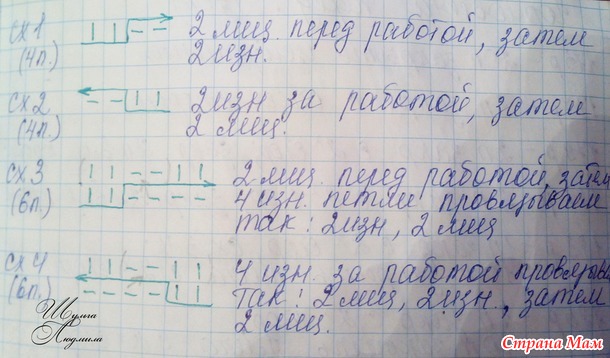 сх1 2 лиц. перед работой, затем
(4п.) 2изн.
сх2 2изн за работой, затем
(4п.) 2 лиц.
сх3 2 лиц. перед работой, затем
(6п.) 4 изн. петли провязываем
так: 2изн, 2 лиц
сх4 4 изн. за работой провязыва
(6п.) так: 2 лиц, 2изн., затем
2 лиц.
Шульга
Людмила
Страна Мам